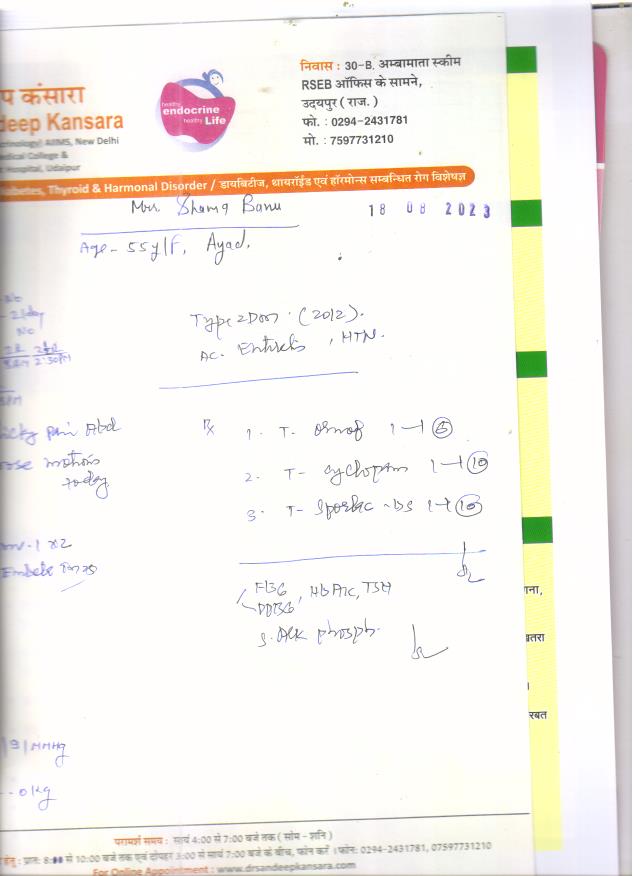 प कंसारा
deep Kansara
AIIMS, New Delhi
dical College &
Hospital, Udaipur
healthy
endocrine
healthy Life
निवास : 30-B, अम्बामाता स्कीम
RSEB ऑफिस के सामने,
उदयपुर ( राज. )
फो. : 0294-2431781
मो. : 7597731210
Diabetes, Thyroid & Harmonal Disorder / डायबिटीज, थायरॉईड एवं हॉरमोन्स सम्बन्धित रोग विशेषज्ञ
Mrs. Shama Banu
18 08 2023
Age - 55y/F, Ayad.
No
- 2/day
No
2:30PM
Type 2 Dm. (2012).
Ac. Enteritis, HTN.
icky pain Abd
oose motions
today
Rx
1. T- ornof 1-1 (6)
2. T- cyclopam 1-1 (10)
3. T- Sporlac -DS 1-1 (10)
-1 x2
FBG
PPBG, HbA1c, TSH
S. Alk phosph.
ाना,
तरा
रबत
MMHg
0 Kg
परामर्श समय : सायं 4:00 से 7:00 बजे तक ( सोम - शनि )
हेतु : प्रात: 8:00 से 10:00 बजे तक एवं दोपहर 3:00 से सायं 7:00 बजे के बीच, फोन करें । फोन: 0294-2431781, 07597731210
For Online Appointment : www.drsandeepkansara.com